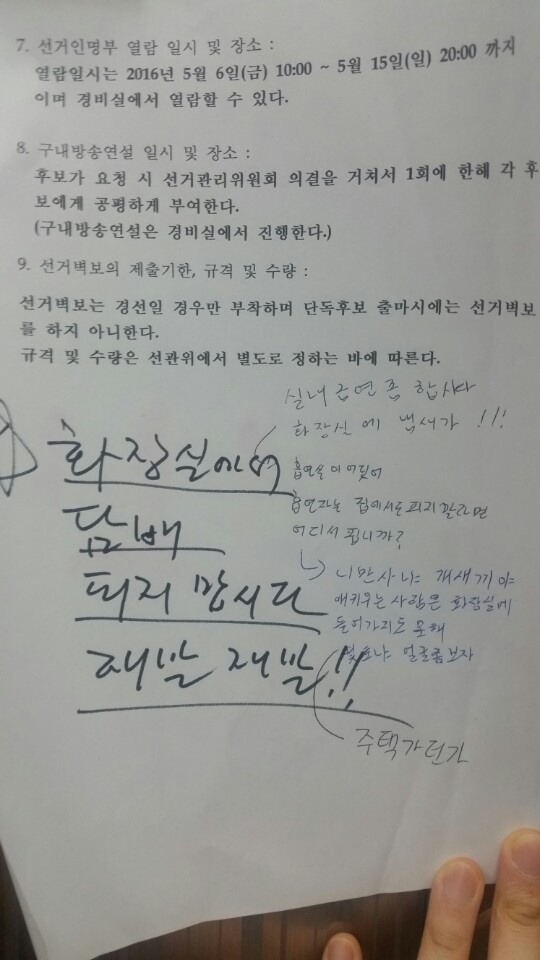 7. 선거인명부 열람 일시 및 장소 :
열람일시는 2016년 5월 6일(금) 10:00 ~ 5월 15일(일) 20:00 까지
이며 경비실에서 열람할 수 있다.
8. 구내방송연설 일시 및 장소 :
후보가 요청 시 선거관리위원회 의결을 거쳐서 1회에 한해 각 후
보에게 공평하게 부여한다.
(구내방송연설은 경비실에서 진행한다.)
9. 선거벽보의 제출기한, 규격 및 수량 :
선거벽보는 경선일 경우만 부착하며 단독후보 출마시에는 선거벽보
를 하지 아니한다.
규격 및 수량은 선관위에서 별도로 정하는 바에 따른다.
실내 금연좀 합시다
화장실에 냄새가 !!!
화장실에서
담배
피지 맙시다
제발 제발!!
흡연자는 집에서도 피지 말라면
어디서 핍니까?
니만 사냐 개새끼야
애키우는 사람은 화장실에
들어가지도 못해
얼굴좀보자
주택가던가